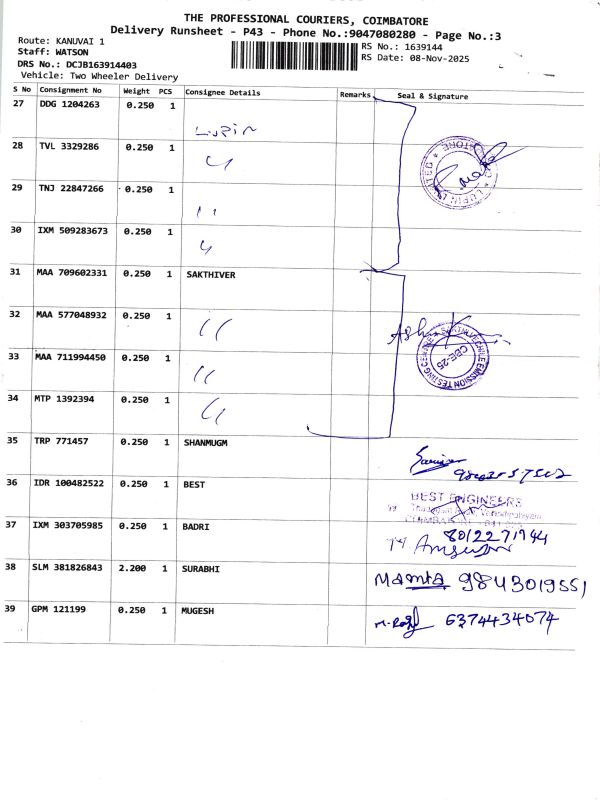 THE PROFESSIONAL COURIERS, COIMBATORE
Delivery Runsheet - P43 - Phone No.:9047080280 - Page No.:3
Route: KANUVAI 1
RS No.: 1639144
Staff: WATSON
RS Date: 08-Nov-2025
DRS No.: DCJB163914403
Vehicle: Two Wheeler Delivery
S No Consignment No Weight PCS Consignee Details Remarks Seal & Signature
27 DDG 1204263 0.250 1
Lupin
28 TVL 3329286 0.250 1
29 TNJ 22847266 0.250 1
30 IXM 509283673 0.250 1
31 MAA 709602331 0.250 1 SAKTHIVER
32 MAA 577048932 0.250 1
33 MAA 711994450 0.250 1
CBE-25
34 MTP 1392394 0.250 1
35 TRP 771457 0.250 1 SHANMUGM
36 IDR 100482522 0.250 1 BEST
BEST ENGINEERS
37 IXM 303705985 0.250 1 BADRI
8012271944
38 SLM 381826843 2.200 1 SURABHI
Mamta 9843019551
39 GPM 121199 0.250 1 MUGESH
6374434074